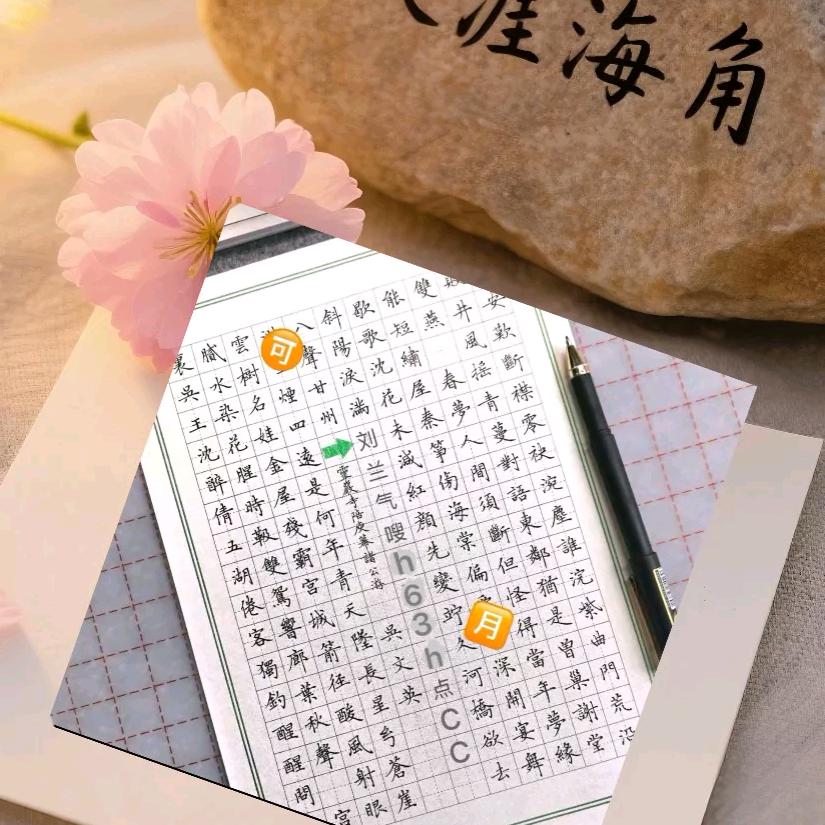 涯海角
安歎斷襟零袂涴塵誰浣紫曲門荒沿
井風摇青蔓對語東鄰猶是曾巢謝堂
雙燕春夢人間須斷但怪得當年夢緣
能短繡屋秦筝傷海棠偏深開宴舞
歇歌沈花未減紅顏先變竚久河橋欲去
斜陽淚滿
刘兰气嗖h63h点CC
八聲甘州
靈巖寺陪庾幕諸公游
吳文英
可
煙四遠是何年青天墜長星兮蒼崖
雲樹名娃金屋殘霸宮城箭徑酸風射眼
膩水染花腥時靸雙鴛響廊葉秋聲宮
裏吳王沈醉倩五湖倦客獨釣醒醒問
月